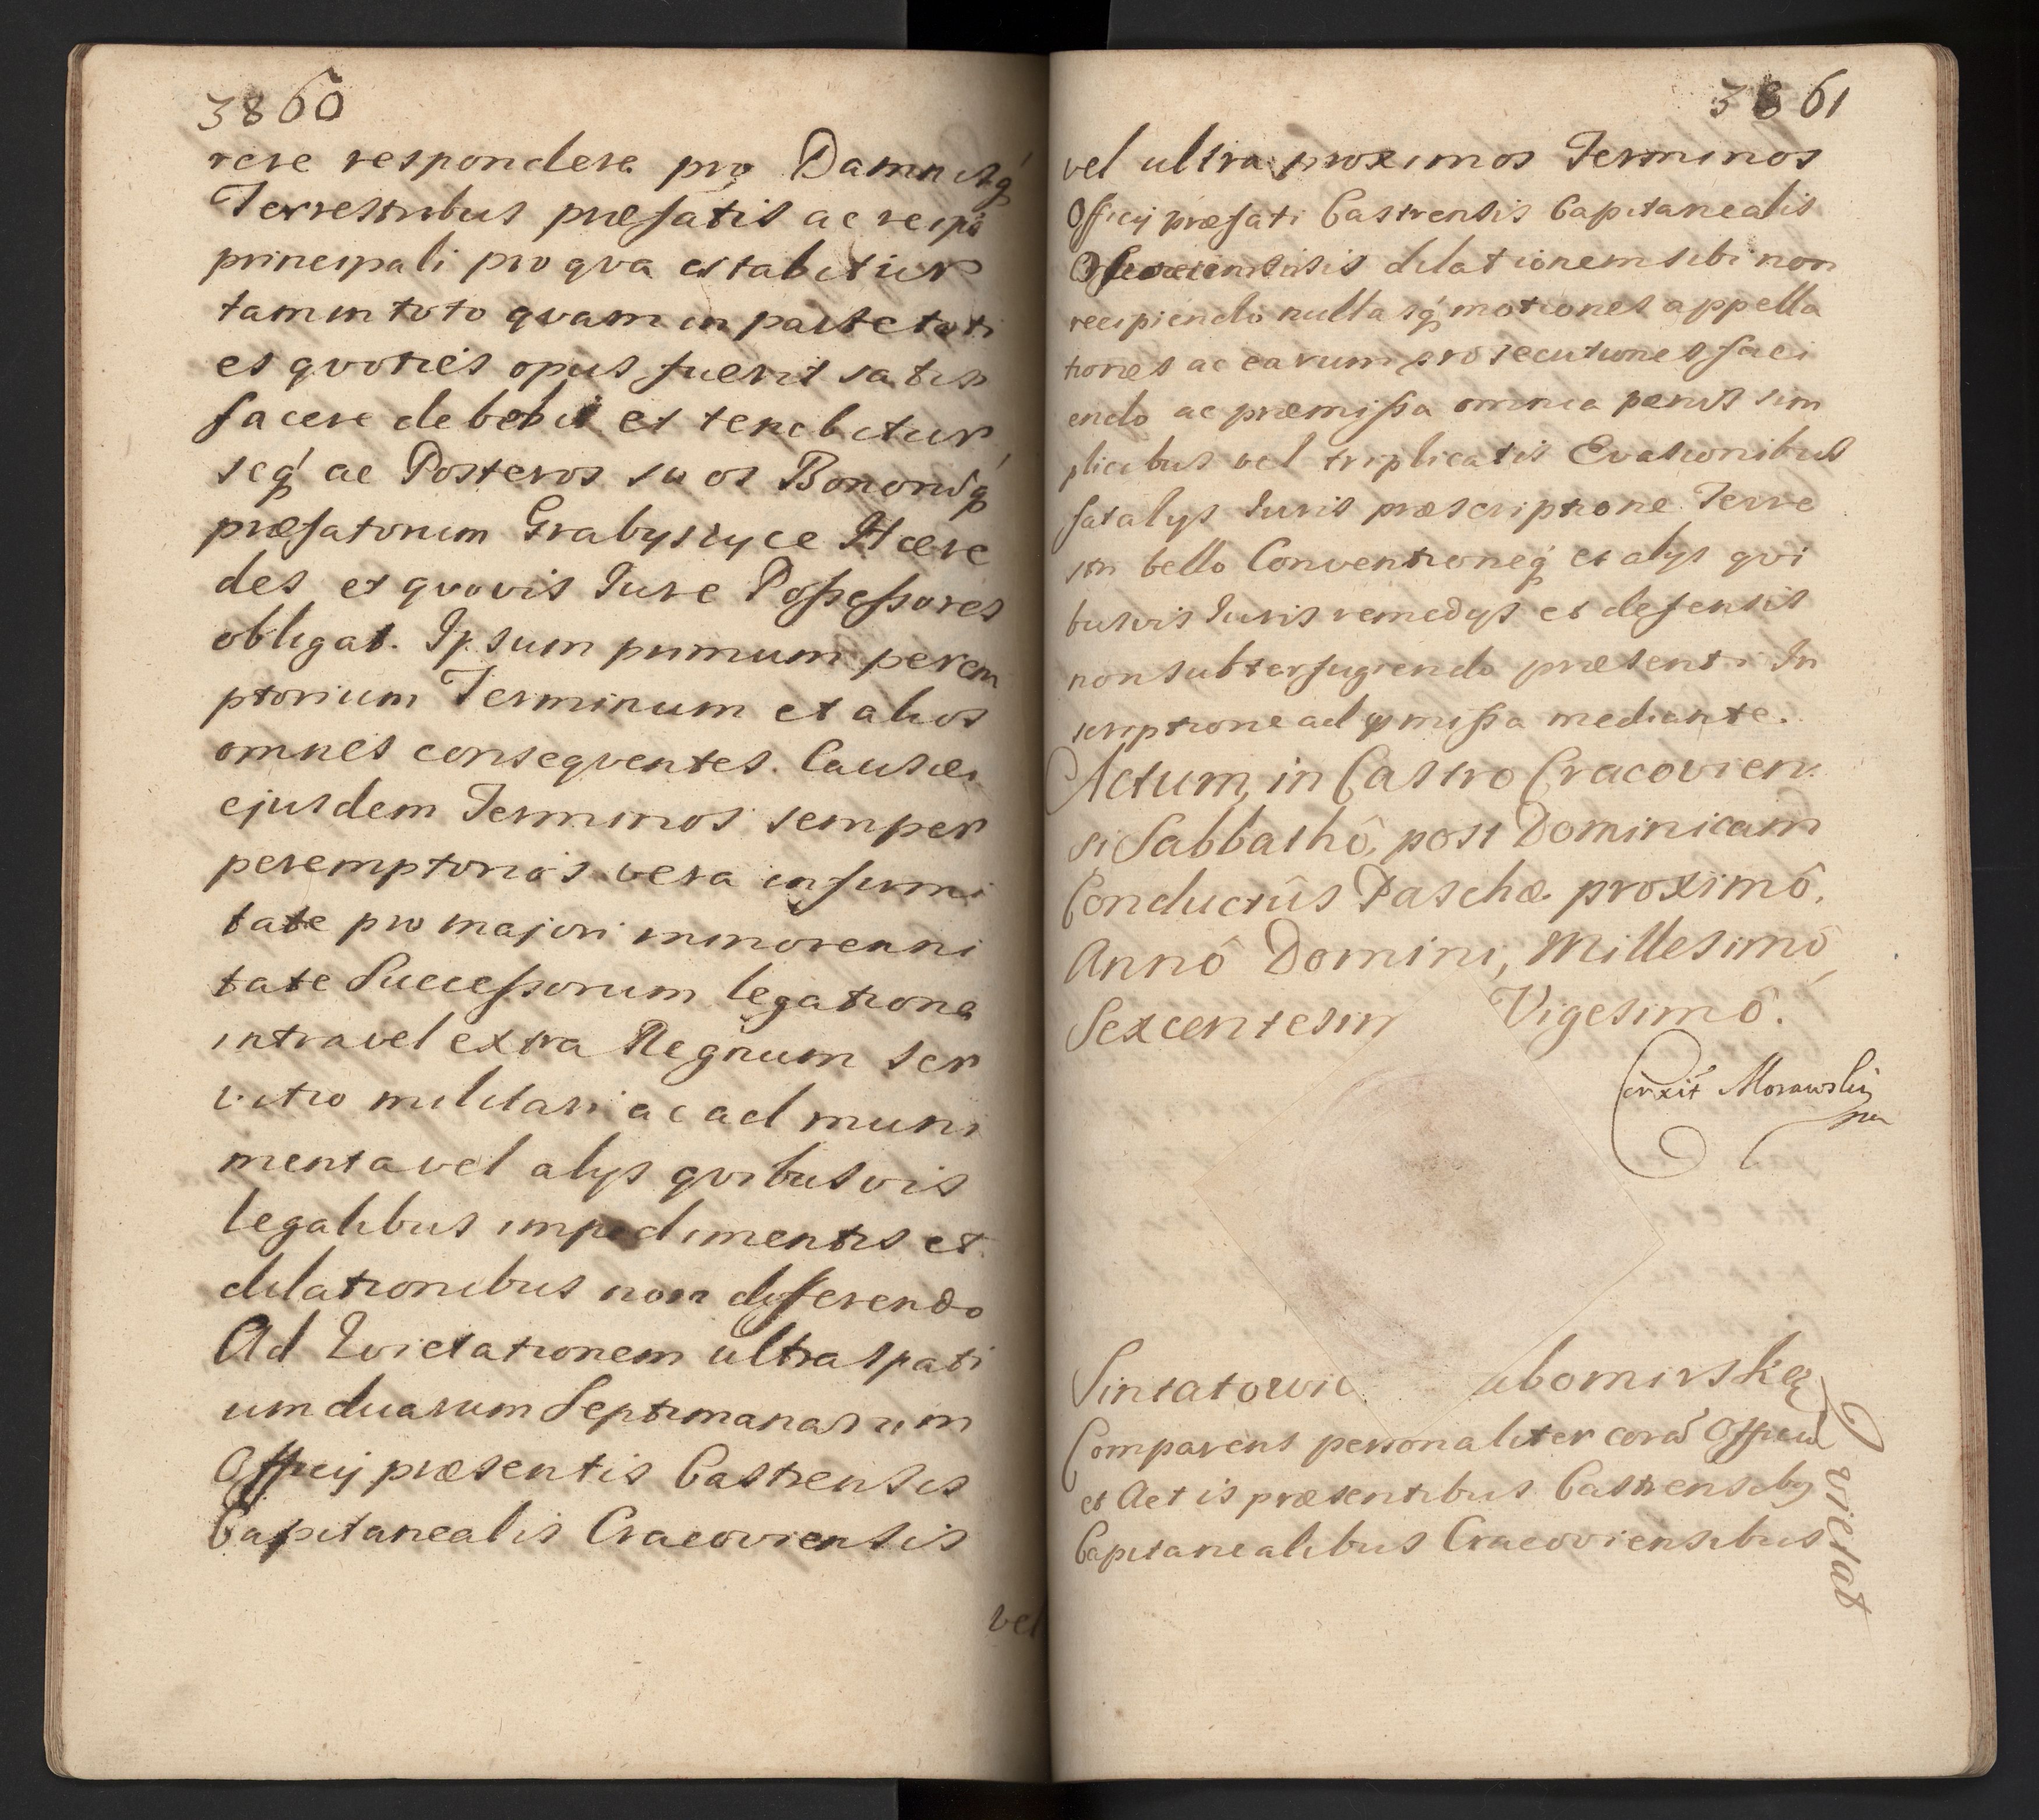 3860
rere respondere pro Damnisq́
Terrestribus præfatis ac re ipa
principali pro qva citabitur
tam in toto qvam in parte toti
es qvoties opus fuerit satis
facere debebit et tenebitur
seq́ ac Posteros suos Bonorusq́
præfatorum Grabyszyce Hære
des et qvovis Jure Possessores
obligat. Ipsum primum perem
ptorium Terminum et alios
omnes conseqventes. Causæ
ejusdem Terminos semper
peremptorios vera infirmi
tate pro majori minorenni
tate Successorum legatione
intra vel extra Regnum ser
vitio militari ac ad muni
menta vel alys qvibusvis
legalibus impedimentis et
dilationibus non differendo
Ad Evictationem ultra spati
um duarum Septimanarum
Officij præsentis Castrensis
Capitanealis Cracoviensis
vel
3861
vel ultra proximos Terminos
Officij præfati Castrensis Capitanealis
dilationem sibi non
recipiendo nullasq́ motiones appella
tiones ac earum prosecutiones faci
endo ac præmissa omnia pænis sim
plicibus vel triplicatis Evasionibus
fatalys Iuris præscriptione Terre
stri bello Conventioneq́ et alys qvi
busvis Iuris remedys et defensis
non subterfugiendo præsenti In
scriptione ad pmissa mediante.
Actum, in Castro Cracovien.
si Sabbathô, post Dominicam
Conductûs Paschæ proximô.
Annô Domini, Millesimô
Sexcentesim Vigesimô.
Corxit Morawski
mp
Siniatowic ubomirskey
Comparens personaliter corã Officio
et Actis præsentibus Castrensiby
Capitanealibus Cracoviensibus
Qvietat